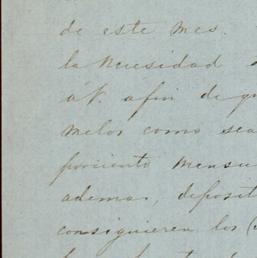 de este mes.
la necesidad
á V. afin de qu
melos como sea
porciento mensu
ademas, deposit
consiguieren los